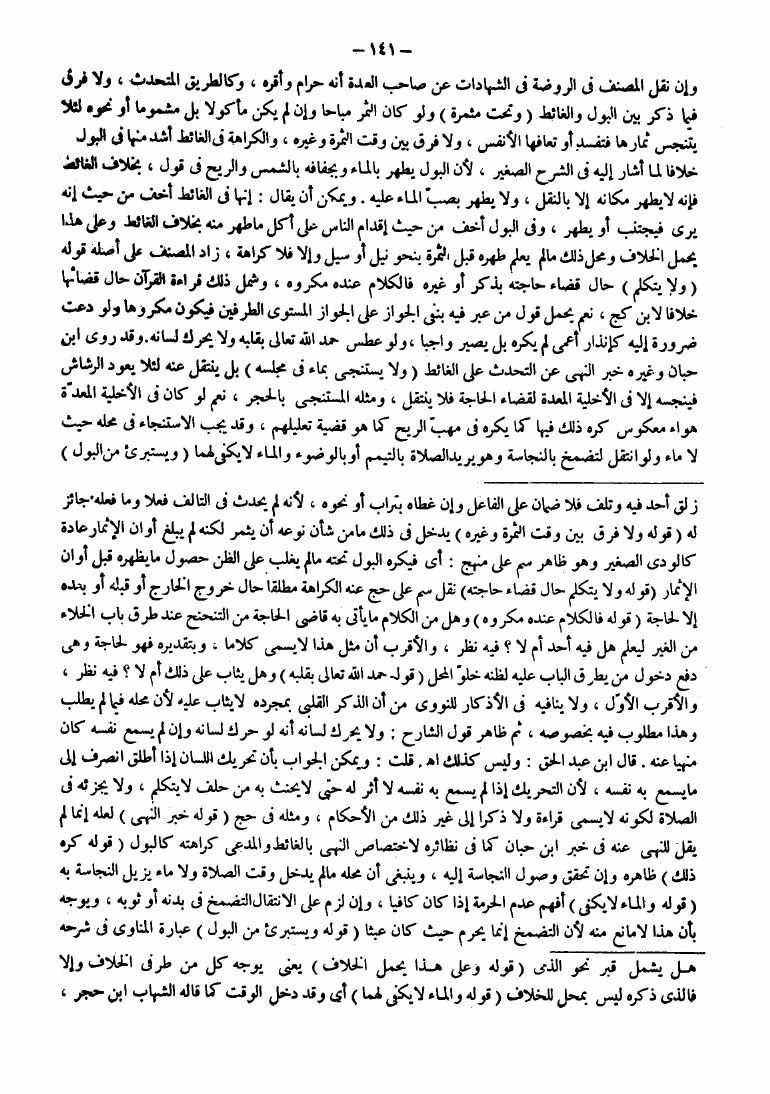 - ١٤١ -
وإن نقل المصنف فى الروضة فى الشهادات عن صاحب العدة أنه حرام وأقره ، وكالطريق المتحدث ، ولا فرق
فيما ذكر بين البول والغائط ( وتحت مثمرة ) ولو كان الثمر مباحا وإن لم يكن مأكولا بل مشموما أو نحوه لئلا
يتنجس ثمارها فتفسد أو تعافها الأنفس ، ولا فرق بين وقت الثمرة وغيره ، والكراهة فى الغائط أشد منها فى البول
خلافا لما أشار إليه فى الشرح الصغير ، لأن البول يطهر بالماء وبجفافه بالشمس والريح فى قول ، بخلاف الغائط
فإنه لايطهر مكانه إلا بالنقل ، ولا يطهر بصبّ الماء عليه . ويمكن أن يقال : إنها فى الغائط أخف من حيث إنه
يرى فيجتنب أو يطهر ، وفى البول أخف من حيث إقدام الناس على أكل ماطهر منه بخلاف الغائط وعلى هذا
يحمل الخلاف ومحل ذلك مالم يعلم طهره قبل الثمرة بنحو نيل أو سيل وإلا فلا كراهة ، زاد المصنف على أصله قوله
( ولا يتكلم ) حال قضاء حاجته بذكر أو غيره فالكلام عنده مكروه ، وشمل ذلك قراءة القرآن حال قضائها
خلافا لابن كج ، نعم يحمل قول من عبر فيه بنى الجواز على الجواز المستوى الطرفين فيكون مكروها ولو دعت
ضرورة إليه كإنذار أعمى لم يكره بل يصير واجبا ، ولو عطس حمد الله تعالى بقلبه ولا يحرك لسانه . وقد روى ابن
حبان وغيره خبر النهى عن التحدث على الغائط ( ولا يستنجى بماء فى مجلسه ) بل ينتقل عنه لئلا يعود الرشاش
فينجسه إلا فى الأخلية المعدة لقضاء الحاجة فلا ينتقل ، ومثله المستنجى بالحجر ، نعم لو كان فى الأخلية المعدّة
هواء معكوس كره ذلك فيها كما يكره فى مهبّ الريح كما هو قضية تعليلهم ، وقد يجب الاستنجاء فى محله حيث
لا ماء ولو انتقل لتضمخ بالنجاسة وهو يريد الصلاة بالتيمم أو بالوضوء والماء لايكفى لهما ( ويستبرئ من البول )
زلق أحد فيه وتلف فلا ضمان على الفاعل وإن غطاه بتراب أو نحوه ، لأنه لم يحدث فى التالف فعلا وما فعله جائز
له ( قوله ولا فرق بين وقت الثمرة وغيره ) يدخل فى ذلك مامن شأن نوعه أن يثمر لكنه لم يبلغ أوان الإثمار عادة
كالودى الصغير وهو ظاهر سم على منهج : أى فيكره البول تحته مالم يغلب على الظن حصول مايطهره قبل أوان
الإثمار (قوله ولا يتكلم حال قضاء حاجته) نقل سم على حج عنه الكراهة مطلقا حال خروج الخارج أو قبله أو بعده
إلا لحاجة ( قوله فالكلام عنده مكروه ) وهل من الكلام مايأتى به قاضى الحاجة من التنحنح عند طرق باب الخلاء
من الغير ليعلم هل فيه أحد أم لا ؟ فيه نظر ، والأقرب أن مثل هذا لايسمى كلاما ، وبتقديره فهو لحاجة وهى
دفع دخول من يطرق الباب عليه لظنه خلوّ المحل ( قوله حمد الله تعالى بقلبه ) وهل يثاب على ذلك أم لا ؟ فيه نظر ،
والأقرب الأوّل ، ولا ينافيه فى الأذكار للنووى من أن الذكر القلبى بمجرده لايثاب عليه لأن محله فيما لم يطلب
وهذا مطلوب فيه بخصوصه ، ثم ظاهر قول الشارح : ولا يحرك لسانه أنه لو حرك لسانه وإن لم يسمع نفسه كان
منهيا عنه . قال ابن عبد الحق : وليس كذلك اهـ . قلت : ويمكن الجواب بأن تحريك اللسان إذا أطلق انصرف إلى
مايسمع به نفسه ، لأن التحريك إذا لم يسمع به نفسه لا أثر له حتى لايحنث به من حلف لايتكلم ، ولا يجزئه فى
الصلاة لكونه لايسمى قراءة ولا ذكرا إلى غير ذلك من الأحكام ، ومثله فى حج ( قوله خبر النهى ) لعله إنما لم
يقل للنهى عنه فى خبر ابن حبان كما فى نظائره لاختصاص النهى بالغائط والمدعى كراهته كالبول ( قوله كره
ذلك ) ظاهره وإن تحقق وصول النجاسة إليه ، وينبغى أن محله مالم يدخل وقت الصلاة ولا ماء يزيل النجاسة به
( قوله والماء لايكفى ) أفهم عدم الحرمة إذا كان كافيا ، وإن لزم على الانتقال التضمخ فى بدنه أو ثوبه ، ويوجه
بأن هذا لامانع منه لأن التضمخ إنما يحرم حيث كان عبثا ( قوله ويستبرئ من البول ) عبارة المناوى فى شرحه
هـل يشمل قبر نحو الذى ( قوله وعلى هـذا يحمل الخلاف ) يعنى يوجه كل من طرفى الخلاف وإلا
فالذى ذكره ليس بمحل للخلاف ( قوله والماء لايكفى لهما ) أى وقد دخل الوقت كما قاله الشهاب ابن حجر ،